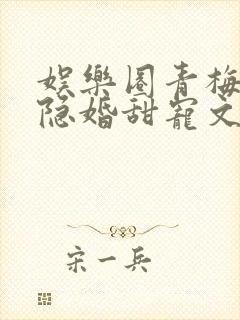 娱樂圈青梅
隐婚甜寵文
宋一兵